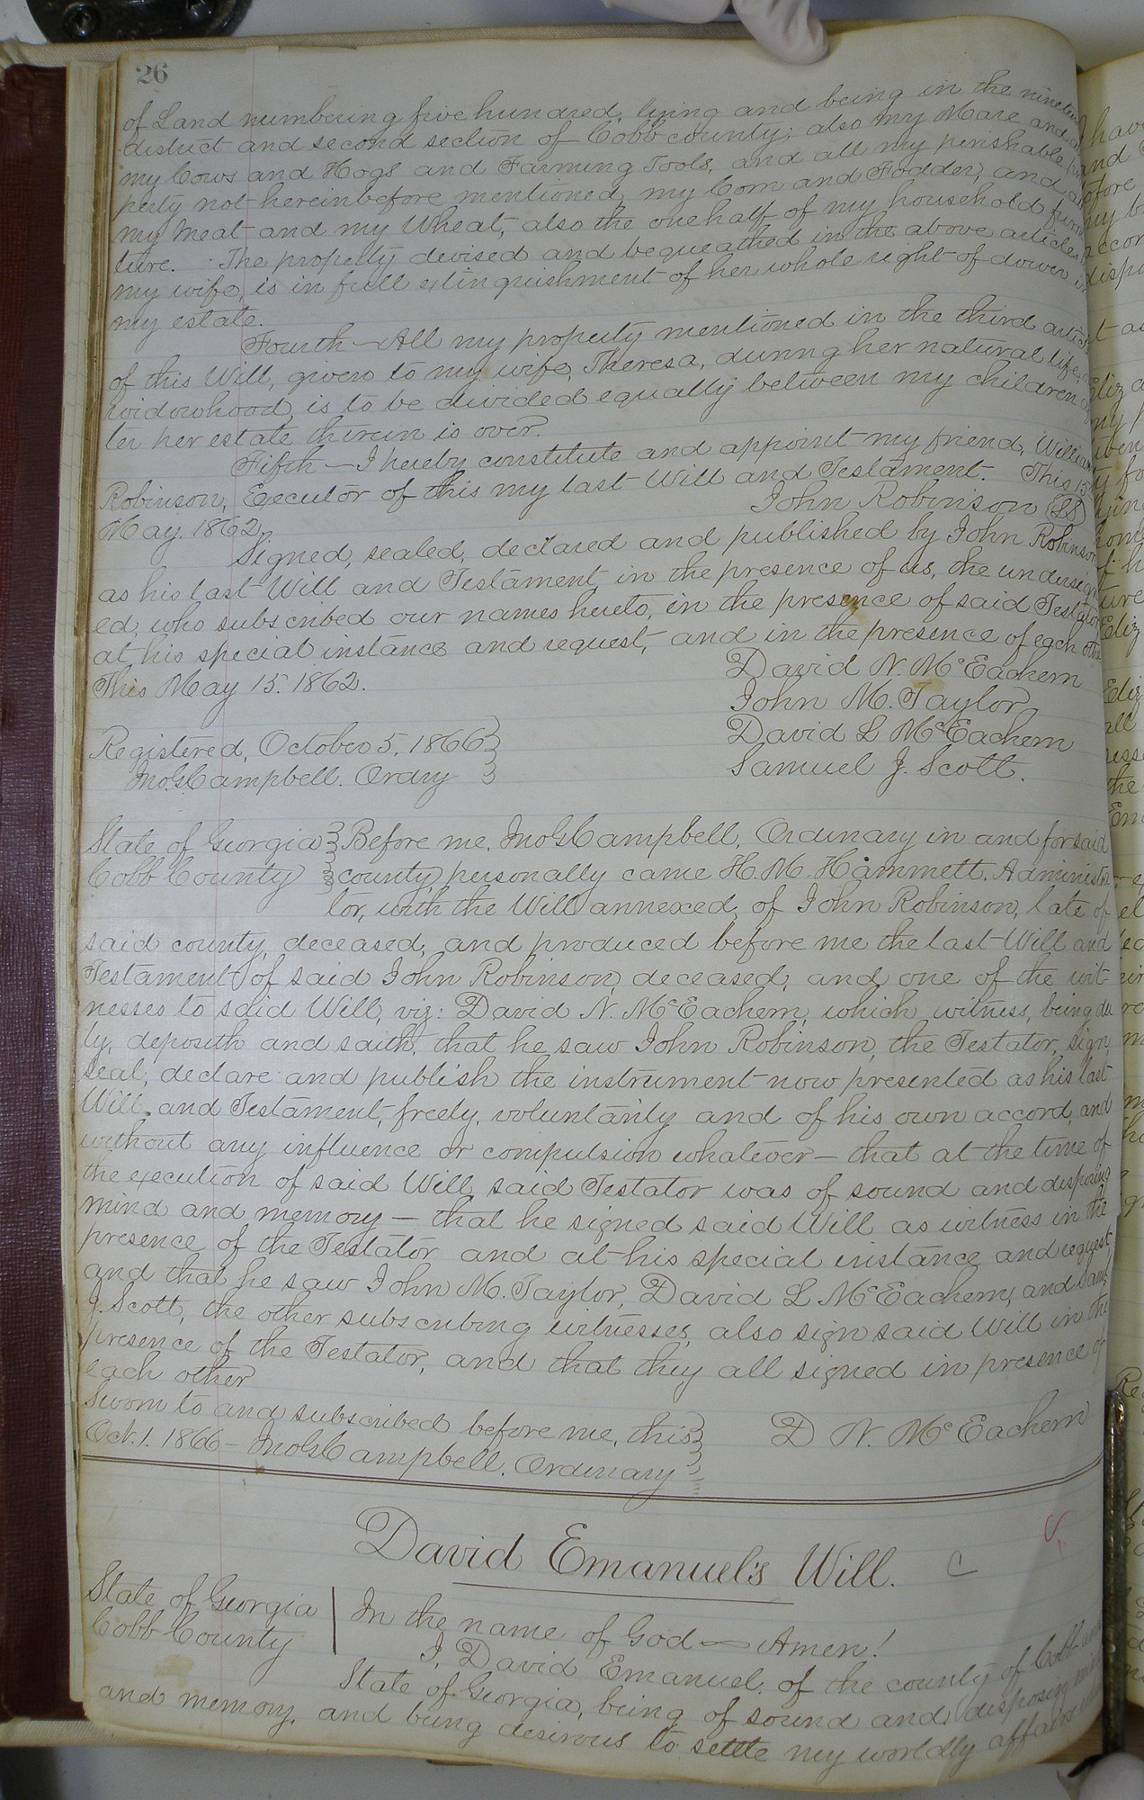 26
of Land numbering five hundred, lying and being in the
district and second section of Cobb county; also my Mare and
my Cows and Hogs and Farming Tools, and all my perishable
perty not hereinbefore mentioned, my Corn and Fodder, and
my Meat and my Wheat, also the one half of my household furni
ture. The property devised and bequeathed in the above article,
my wife, is in full extinguishment of her whole right of dower in
my estate.
Fourth — All my property mentioned in the third article
of this Will, given to my wife, Theresa, during her natural life
widowhood, is to be divided equally between my children
ter her estate therein is over.
Fifth — I hereby constitute and appoint my friend, William
Robinson, Executor of this my last Will and Testament. This 15
May. 1862.
John Robinson LS
Signed, sealed, declared and published by John Robinson
as his last Will and Testament in the presence of us, the undersign
ed, who subscribed our names hereto, in the presence of said Testator
at his special instance and request, and in the presence of each other
This May 15. 1862.
David N. McEachern
John M. Taylor
David L McEachern
Samuel J. Scott.
Registered, October 5, 1866
Jno. G. Campbell. Ordry
State of Georgia
Cobb County
Before me, Jno G Campbell, Ordinary in and for said
county, personally came H. M. Hammett. Administra
tor, with the Will annexed, of John Robinson, late of
said county, deceased, and produced before me the last Will and
Testament of said John Robinson, deceased, and one of the wit
nesses to said Will, viz: David N. McEachern, which witness, being du
ly, deposeth and saith, that he saw John Robinson, the Testator, sign,
seal, declare and publish the instrument now presented as his last
Will and Testament, freely, voluntarily and of his own accord, and
without any influence or compulsion whatever — that at the time of
the execution of said Will, said Testator was of sound and disposing
mind and memory — that he signed said Will as witness in the
presence of the Testator and at his special instance and request,
and that he saw John M. Taylor, David L McEachern, and Saml
J. Scott, the other subscribing witnesses, also sign said Will in the
presence of the Testator, and that they all signed in presence of
each other
Sworn to and subscribed before me, this
Oct. 1. 1866 — Jno G Campbell. Ordinary
D N. McEachern
David Emanuel's Will. C
State of Georgia
Cobb County
In the name of God — Amen!
I, David Emanuel, of the county of Cobb
State of Georgia, being of sound and disposing mind
and memory, and being desirous to settle my worldly affairs